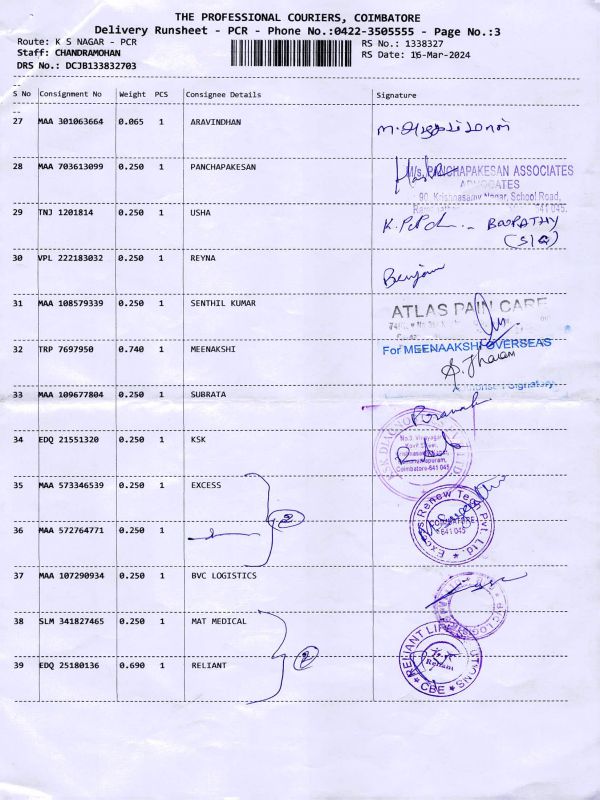 THE PROFESSIONAL COURIERS, COIMBATORE
Delivery Runsheet - PCR - Phone No.:0422-3505555 - Page No.:3
Route: K S NAGAR - PCR
RS No.: 1338327
Staff: CHANDRAMOHAN
RS Date: 16-Mar-2024
DRS No.: DCJB133832703
S No Consignment No Weight PCS Consignee Details Signature
27 MAA 301063664 0.065 1 ARAVINDHAN
28 MAA 703613099 0.250 1 PANCHAPAKESAN
M/s. PANCHAPAKESAN ASSOCIATES
ADVOCATES
90, Krishnasamy Nagar, School Road,
641 045.
29 TNJ 1201814 0.250 1 USHA
BOOPATHY
30 VPL 222183032 0.250 1 REYNA
31 MAA 108579339 0.250 1 SENTHIL KUMAR
ATLAS PAIN CARE
32 TRP 7697950 0.740 1 MEENAKSHI
For MEENAAKSHI OVERSEAS
33 MAA 109677804 0.250 1 SUBRATA
34 EDQ 21551320 0.250 1 KSK
Coimbatore-641 045
35 MAA 573346539 0.250 1 EXCESS
2
Excess Renew Tech Pvt. Ltd.
COIMBATORE
641 045
36 MAA 572764771 0.250 1
37 MAA 107290934 0.250 1 BVC LOGISTICS
38 SLM 341827465 0.250 1 MAT MEDICAL
2
39 EDQ 25180136 0.690 1 RELIANT
CBE